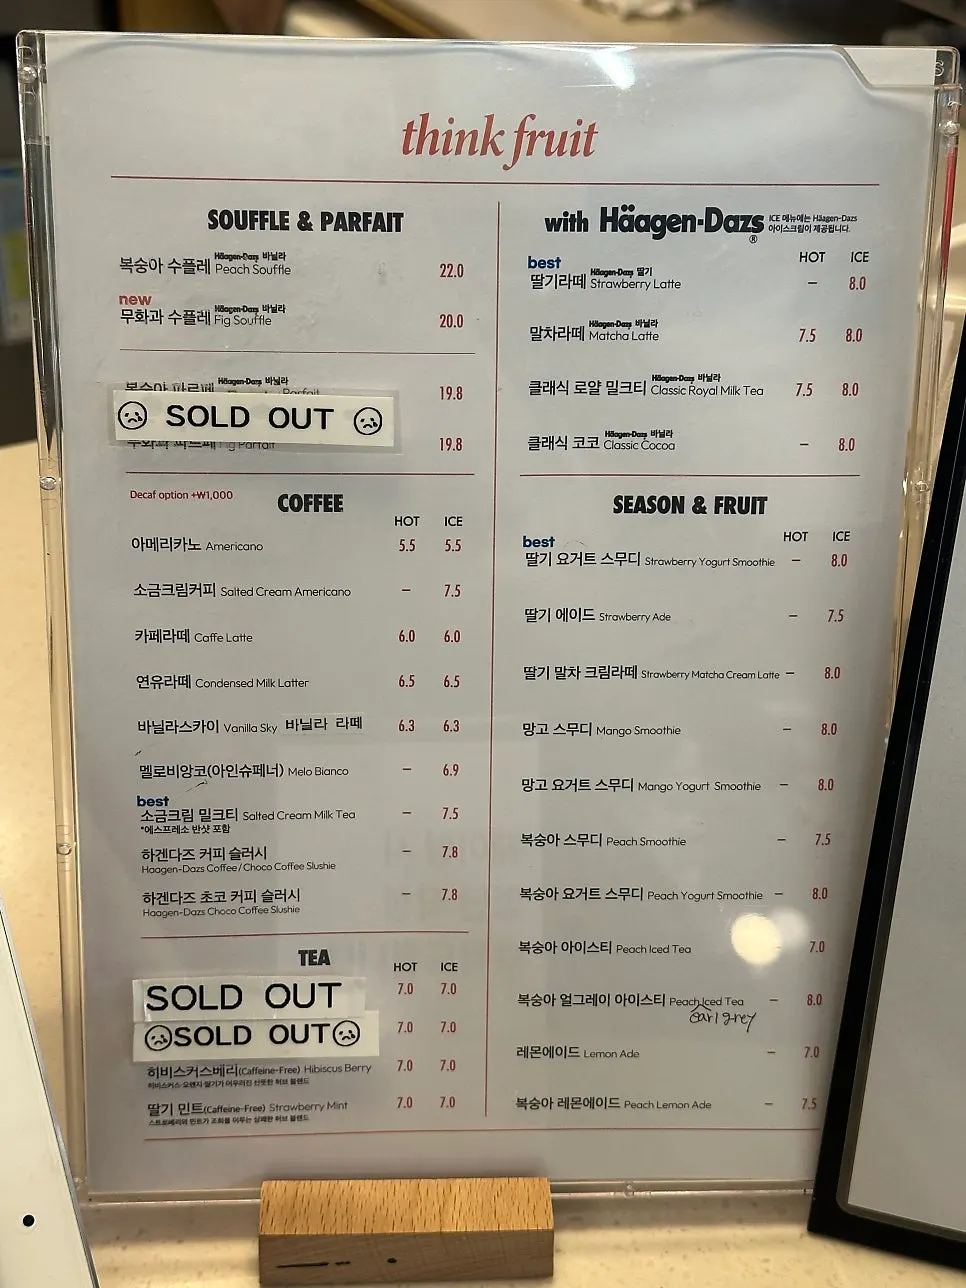 think fruit
SOUFFLE & PARFAIT
Häagen-Dazs 바닐라
복숭아 수플레 Peach Souffle 22.0
new
Häagen-Dazs 바닐라
무화과 수플레 Fig Souffle 20.0
Häagen-Dazs 바닐라
복숭아 파르페 Parfait 19.8
SOLD OUT
무화과 파르페 Fig Parfait 19.8
Decaf option +₩1,000
COFFEE
HOT ICE
아메리카노 Americano 5.5 5.5
소금크림커피 Salted Cream Americano – 7.5
카페라떼 Caffe Latte 6.0 6.0
연유라떼 Condensed Milk Latter 6.5 6.5
바닐라스카이 Vanilla Sky 바닐라 라떼 6.3 6.3
멜로비앙코(아인슈페너) Melo Bianco – 6.9
best
소금크림 밀크티 Salted Cream Milk Tea – 7.5
*에스프레소 반샷 포함
하겐다즈 커피 슬러시 – 7.8
Haagen-Dazs Coffee/Choco Coffee Slushie
하겐다즈 초코 커피 슬러시 – 7.8
Haagen-Dazs Choco Coffee Slushie
TEA
HOT ICE
SOLD OUT 7.0 7.0
SOLD OUT 7.0 7.0
히비스커스베리(Caffeine-Free) Hibiscus Berry 7.0 7.0
히비스커스·오렌지·딸기가 어우러진 산뜻한 허브 블렌드
딸기 민트(Caffeine-Free) Strawberry Mint 7.0 7.0
스트로베리와 민트가 조화를 이루는 상쾌한 허브 블렌드
with Häagen-Dazs®
ICE 메뉴에는 Häagen-Dazs
아이스크림이 제공됩니다.
HOT ICE
best
Häagen-Dazs 딸기
딸기라떼 Strawberry Latte – 8.0
Häagen-Dazs 바닐라
말차라떼 Matcha Latte 7.5 8.0
Häagen-Dazs 바닐라
클래식 로얄 밀크티 Classic Royal Milk Tea 7.5 8.0
Häagen-Dazs 바닐라
클래식 코코 Classic Cocoa – 8.0
SEASON & FRUIT
HOT ICE
best
딸기 요거트 스무디 Strawberry Yogurt Smoothie – 8.0
딸기 에이드 Strawberry Ade – 7.5
딸기 말차 크림라떼 Strawberry Matcha Cream Latte – 8.0
망고 스무디 Mango Smoothie – 8.0
망고 요거트 스무디 Mango Yogurt Smoothie – 8.0
복숭아 스무디 Peach Smoothie – 7.5
복숭아 요거트 스무디 Peach Yogurt Smoothie – 8.0
복숭아 아이스티 Peach Iced Tea 7.0
복숭아 얼그레이 아이스티 Peach Iced Tea – 8.0
earl grey
레몬에이드 Lemon Ade – 7.0
복숭아 레몬에이드 Peach Lemon Ade – 7.5